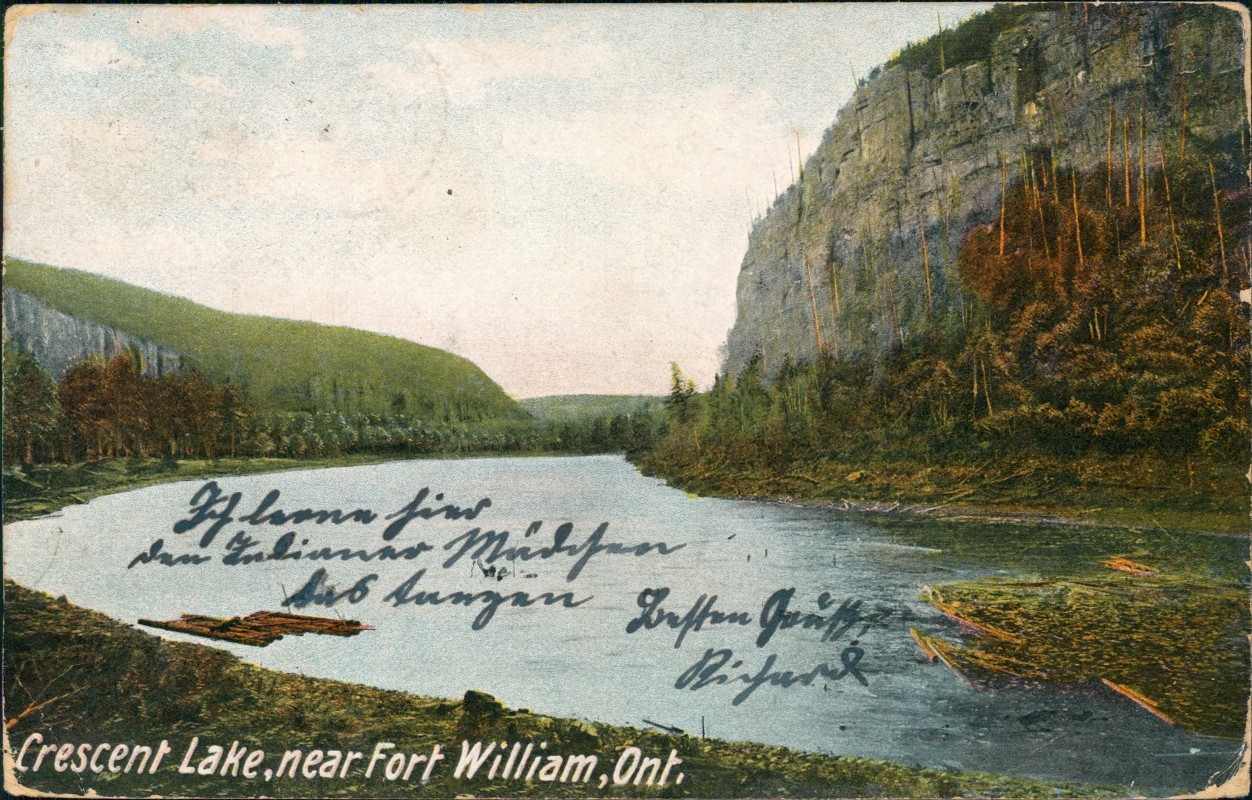 Ich lerne hier
den Indianer Mädchen
das tanzen
Besten Gruß,
Richard
Crescent Lake, near Fort William, Ont.